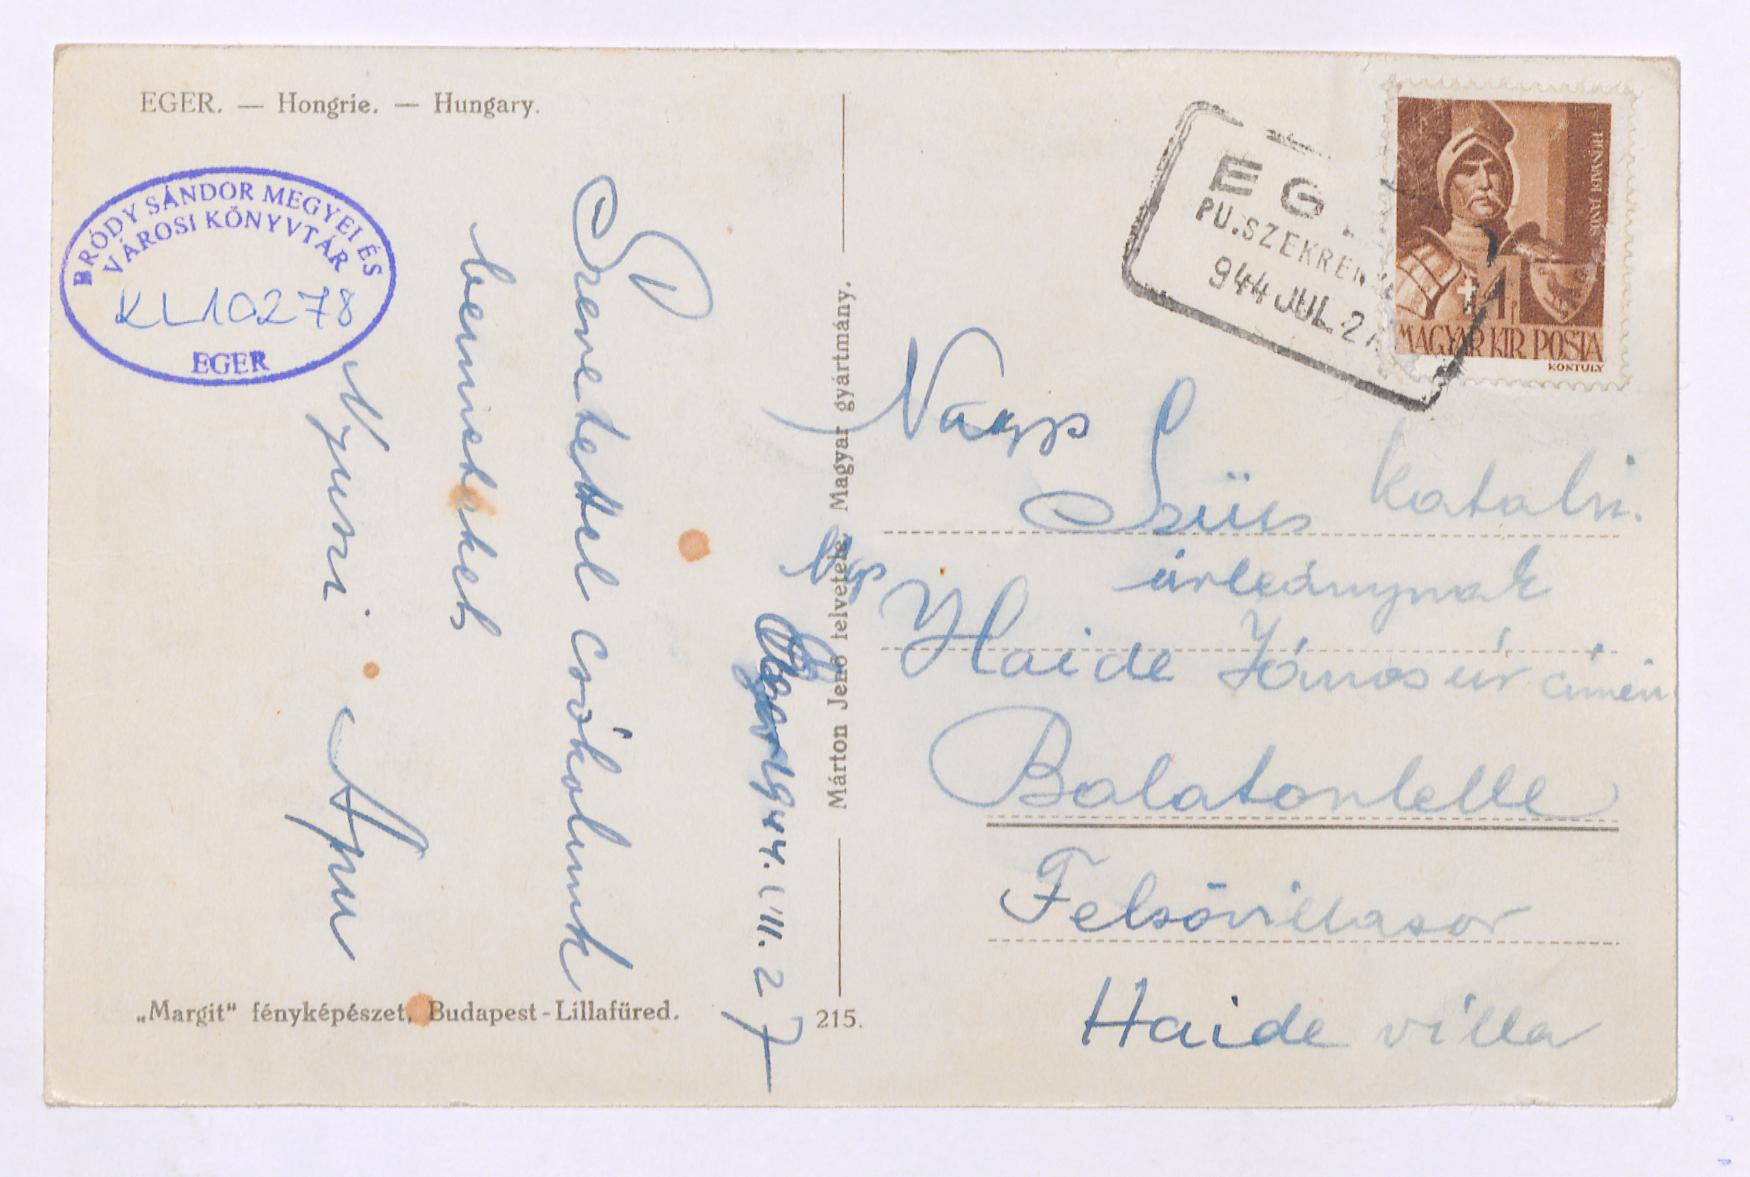 EGER. — Hongrie. — Hungary.
BRÓDY SÁNDOR MEGYEI ÉS
VÁROSI KÖNYVTÁR
KL10278
EGER
Eger 1944. VII. 27
Szeretettel csókolunk
benneteket
Nyuszi Apu
„Margit“ fényképészet, Budapest-Lillafüred.
215.
Márton Jenő felvetele. Magyar gyártmány.
EG
PU.SZEKRÉNY
944 JUL. 2
HUNYADI JÁNOS
MAGYAR KIR POSTA
KONTULY
Nagys
Szüts Katalin.
úrleánynak
Haide János úr címén
Balatonlelle
Felsővillasor
Haide villa